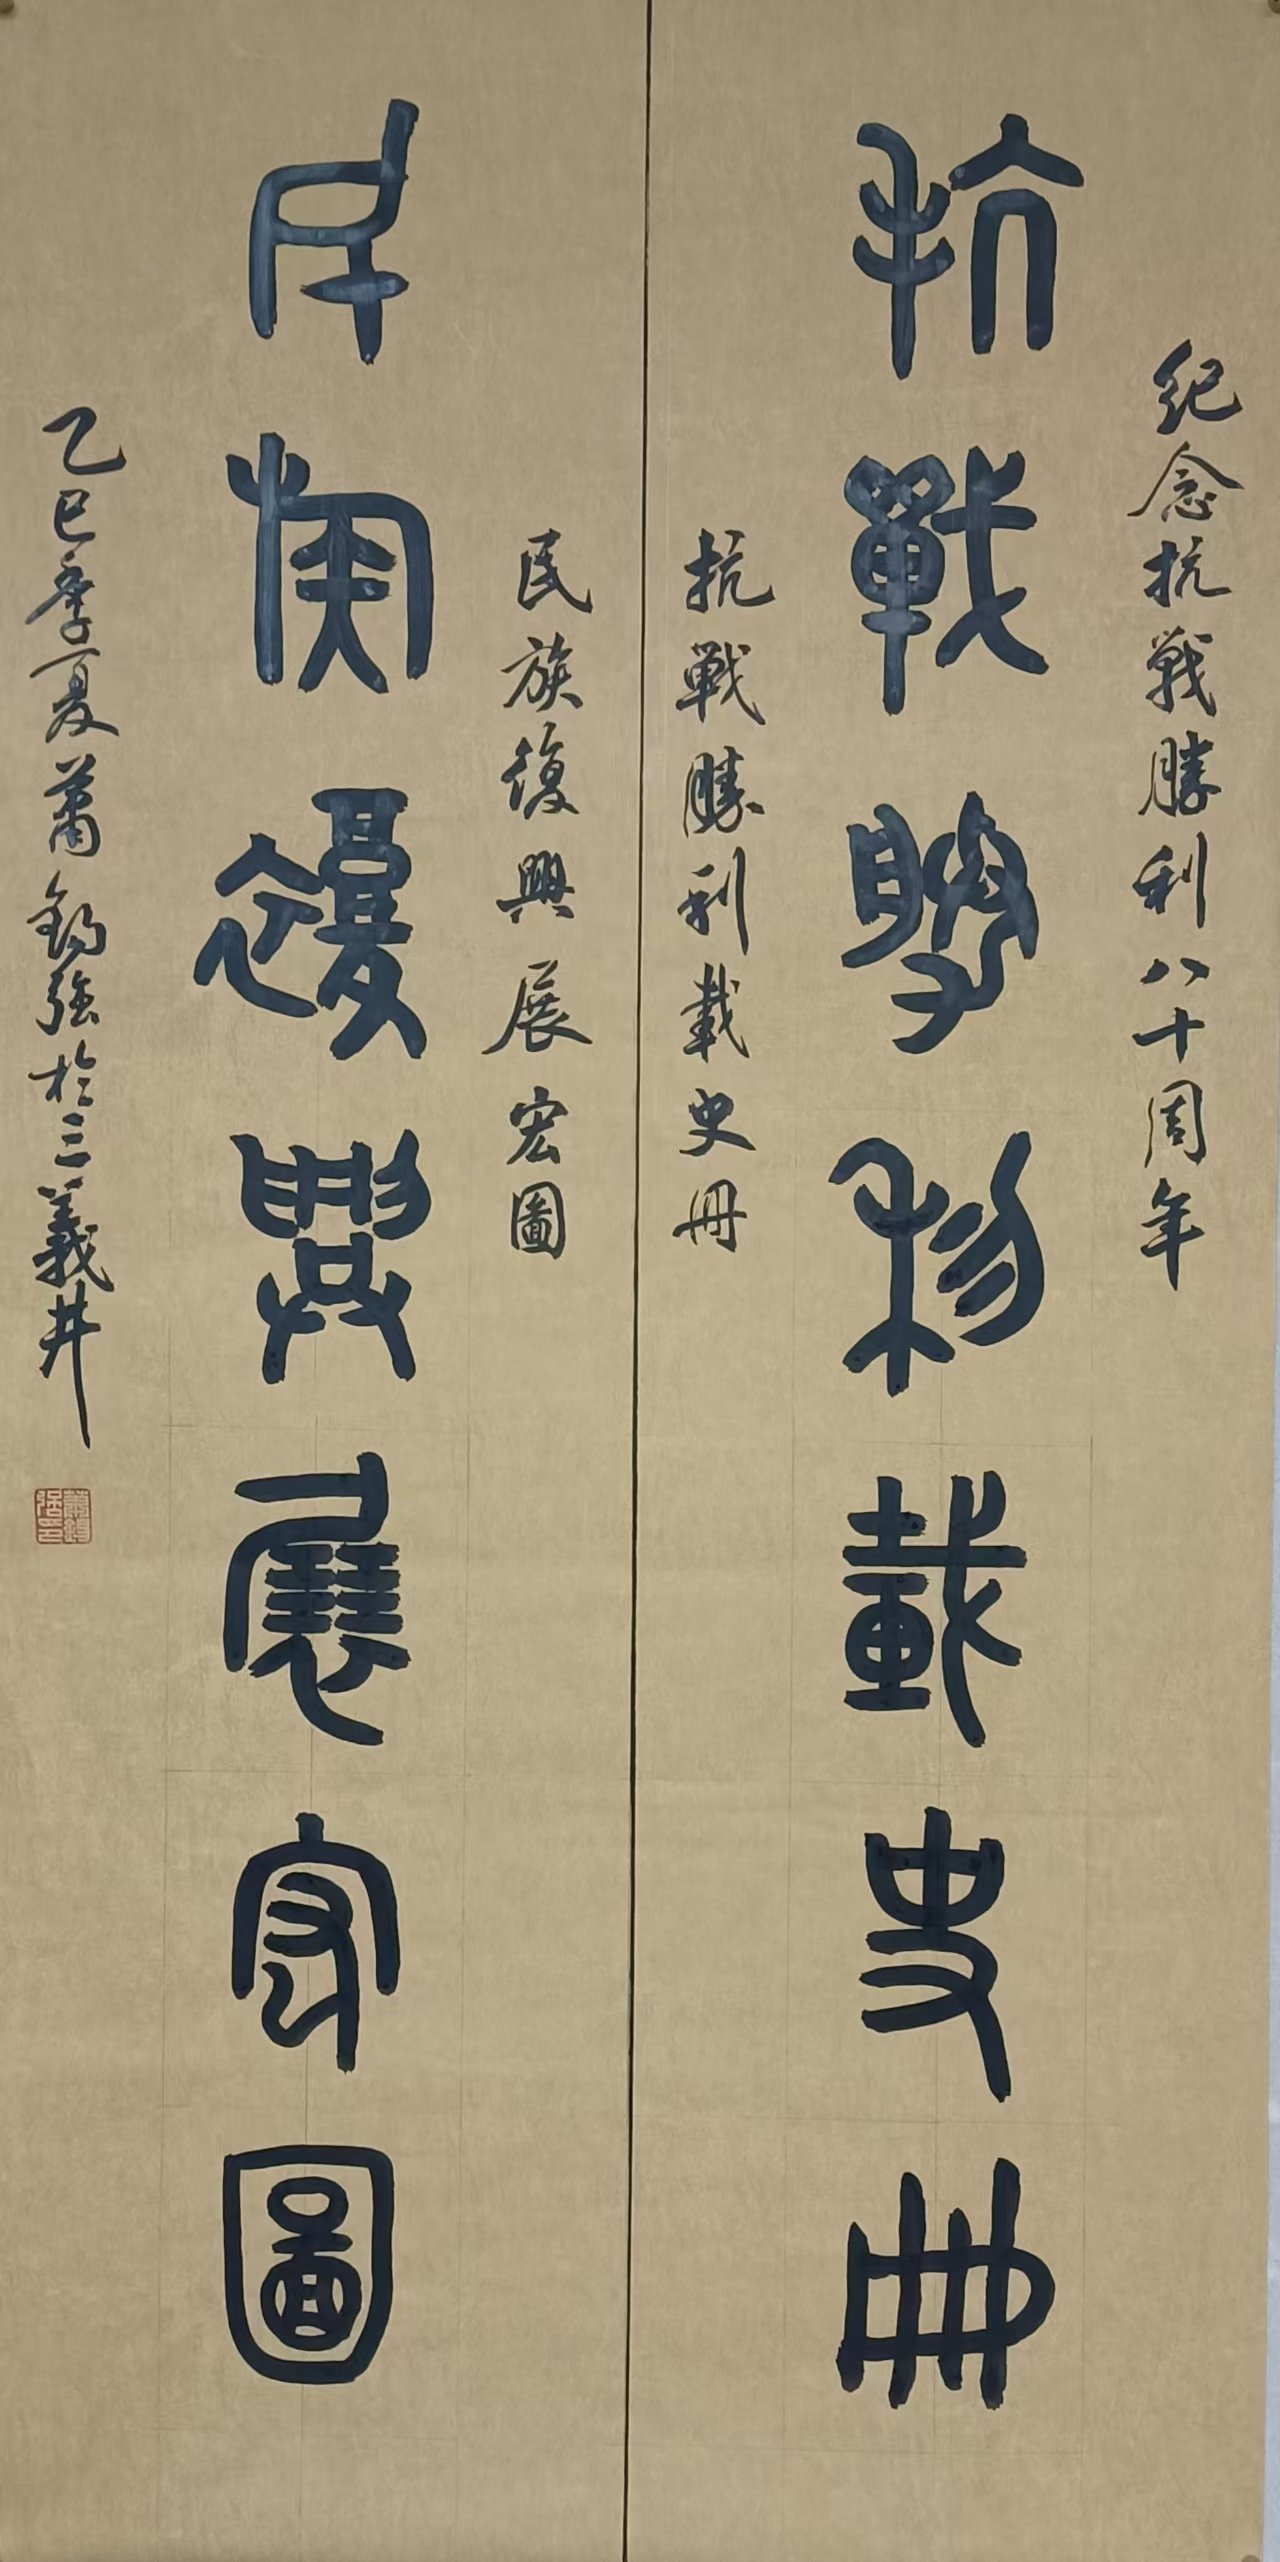 紀念抗戰勝利八十周年
抗戰勝利載史冊
抗戰勝利載史冊
民族復興展宏圖
民族復興展宏圖
乙巳季夏蕭錫強於三義井